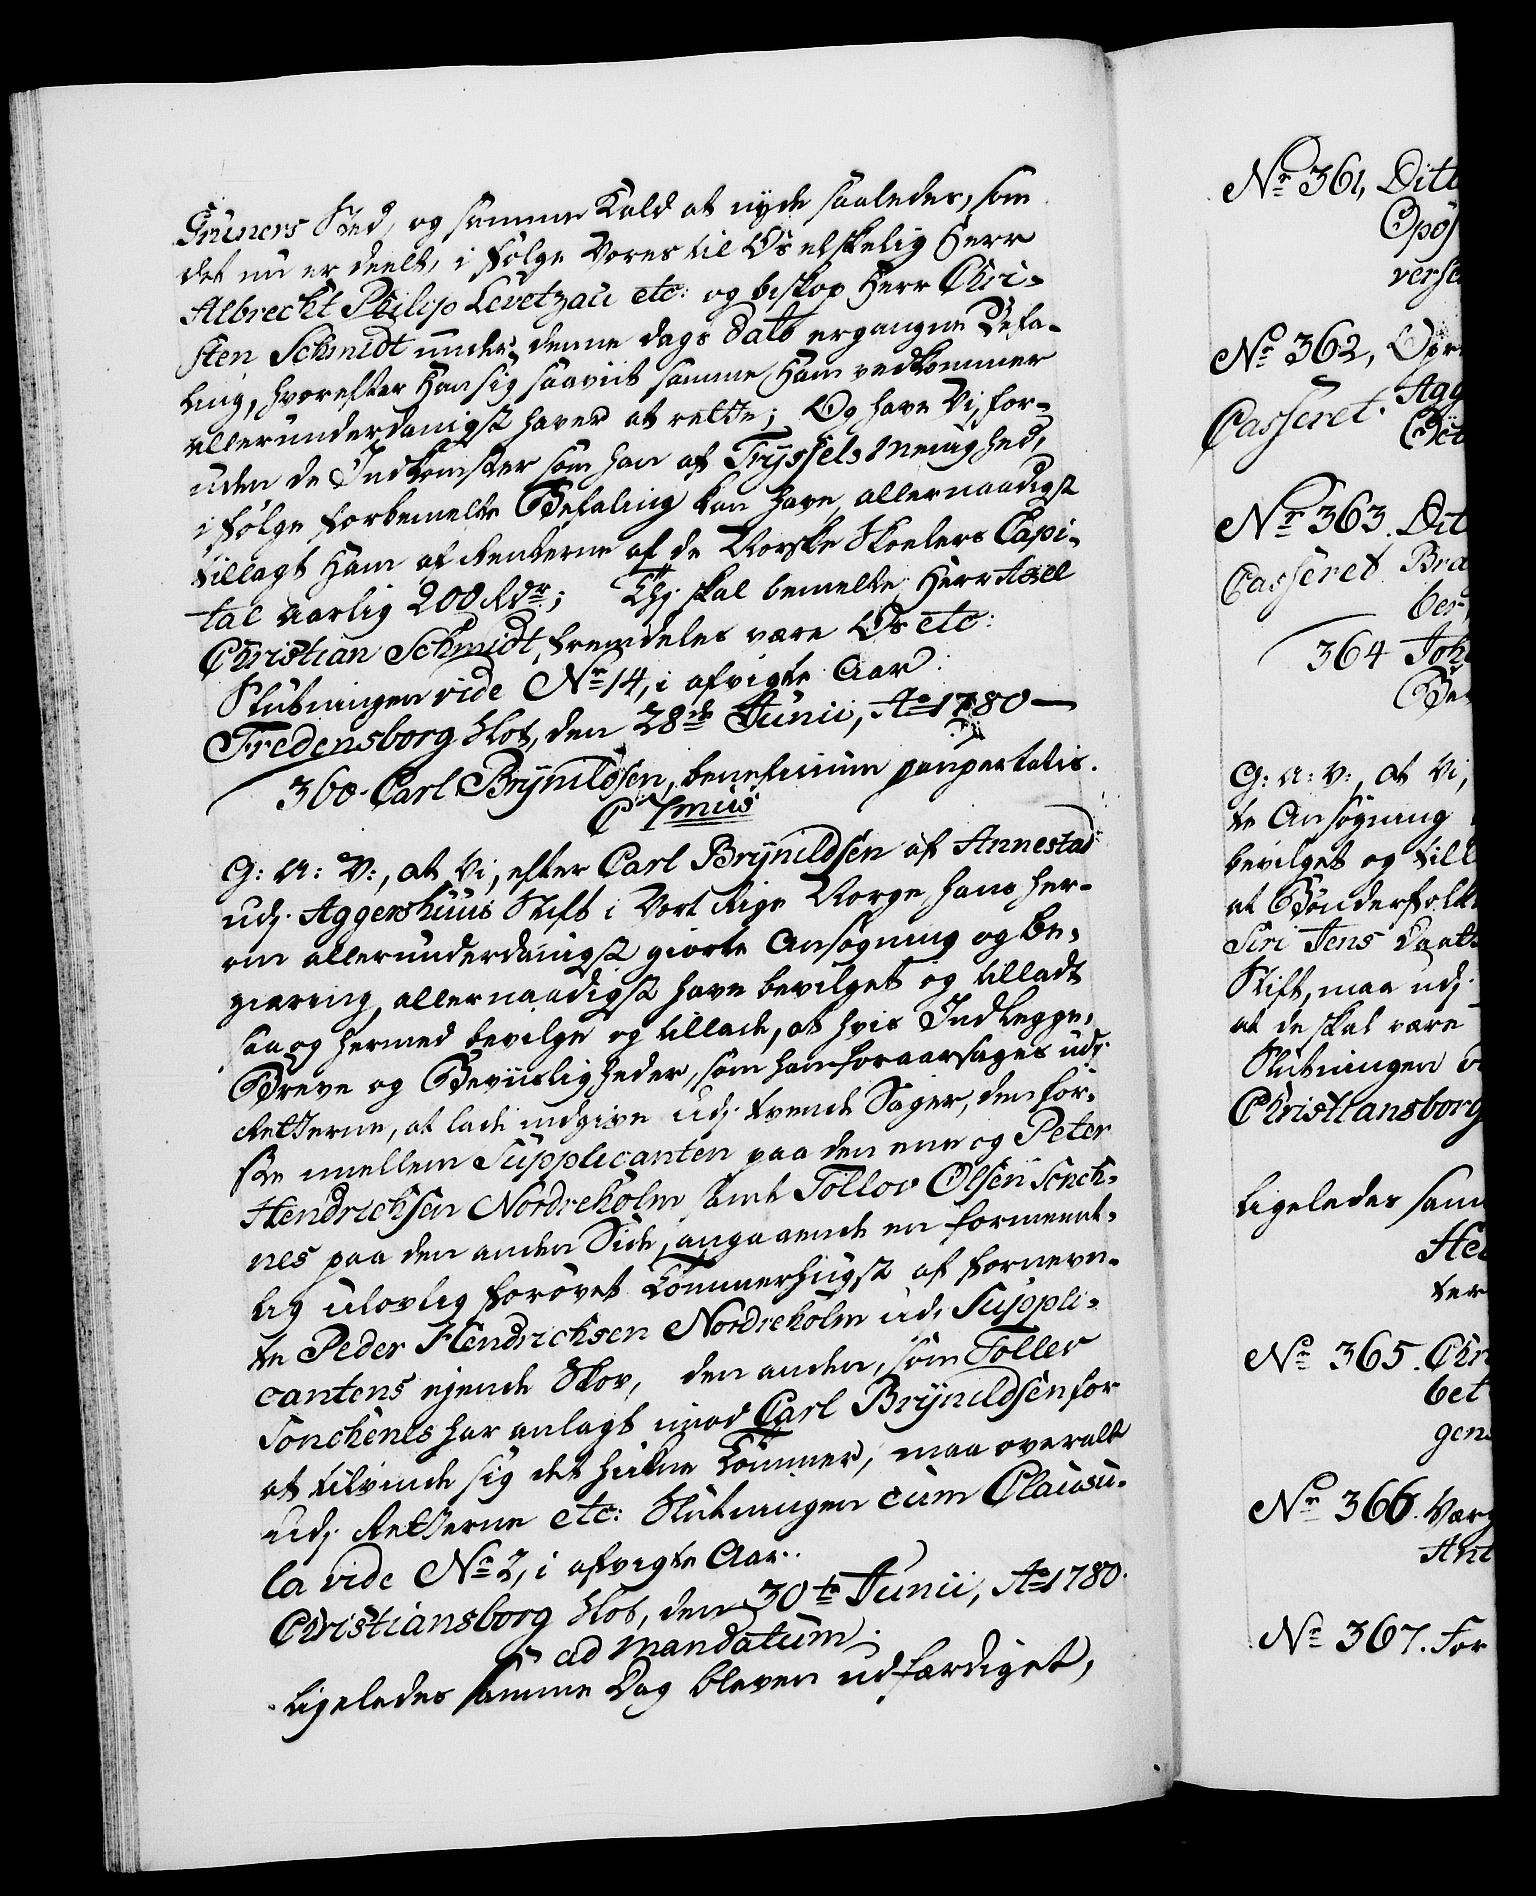 Grüners Sted, og samme Kald at nyde saaledes, som
det nu er deelt, i følge Vores til Os elskelig Herr
Albrecht Philip Levetzau etc: og biskop Herr Chri-
sten Schmidt under denne dags dato ergangne Befa-
ling, hvorefter Han sig saavit samme Ham vedkommer
allerunderdanigst haver at rette; Og have Vi, for-
uden de Indkomster som han af Tryssels Meenighed,
i følge forbemelte Befaling kan have, allernaadigst
tillagt Ham af Renterne af de Norske Skoelers Capi-
tal aarlig 200 Rdr; Thj skal bemelte Herr Axel
Christian Schmidt, fremdeles være Os etc:
Slutningen vide No 14, i afvigte Aar.
Fredensborg Slot, den 28de Junii, Ao 1780 —
360. Carl Brynildsen, beneficium paupertatis.
C 7mus
G: A: V:, at Vi, efter Carl Brynildsen af Annestad
udj Aggershuus Stift i Vort Rige Norge, hans her-
om allerunderdanigst giorte Ansøgning og Be-
giæring, allernaadigst have bevilget og tilladt
saa og hermed bevilge og tillade, at hvis Indlegge,
Breve og Beviisligheder, som han foraarsages udj
Retterne, at lade indgive udj tvende Sager, den før-
ste imellem Supplicanten paa den ene og Peter
Hendrichsen Nordreholm samt Tollov Olsen Sonch-
nes paa den anden Side, angaaende en formeent-
lig ulovlig forøvet Tømmerhugst af fornevn-
te Peder Hendrichsen Nordreholm udj Suppli-
cantens ejende Skov, den anden, som Tollev
Sonchenes har anlagt imod Carl Brynildsen for
at tilvinde sig det hugne Tømmer, maa overalt
udj Retterne etc: Slutningen cum Clausu-
la vide No 2, i afvigte Aar.
Christiansborg Slot, den 30te Junii, Ao 1780.
ad mandatum.
Ligeledes samme Dag bleven udfærdiget,
No 361, Dito
No 362,
Casseret.
No 363. Dit
Casseret Bra
364 Joh
G: A: V:, at Vi,
te Ansøgning
bevilget og till
at Bønderfolk
Siri Jens Daat
Stift, maa udj
at de skal være
Slutningen
Christiansborg
Ligeledes sam
No 365. Chr
bet
gens
No 366. Værg
Ant
No 367. For